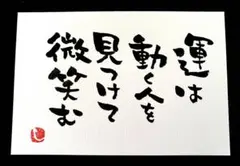 運は
動く人を
見つけて
微笑む